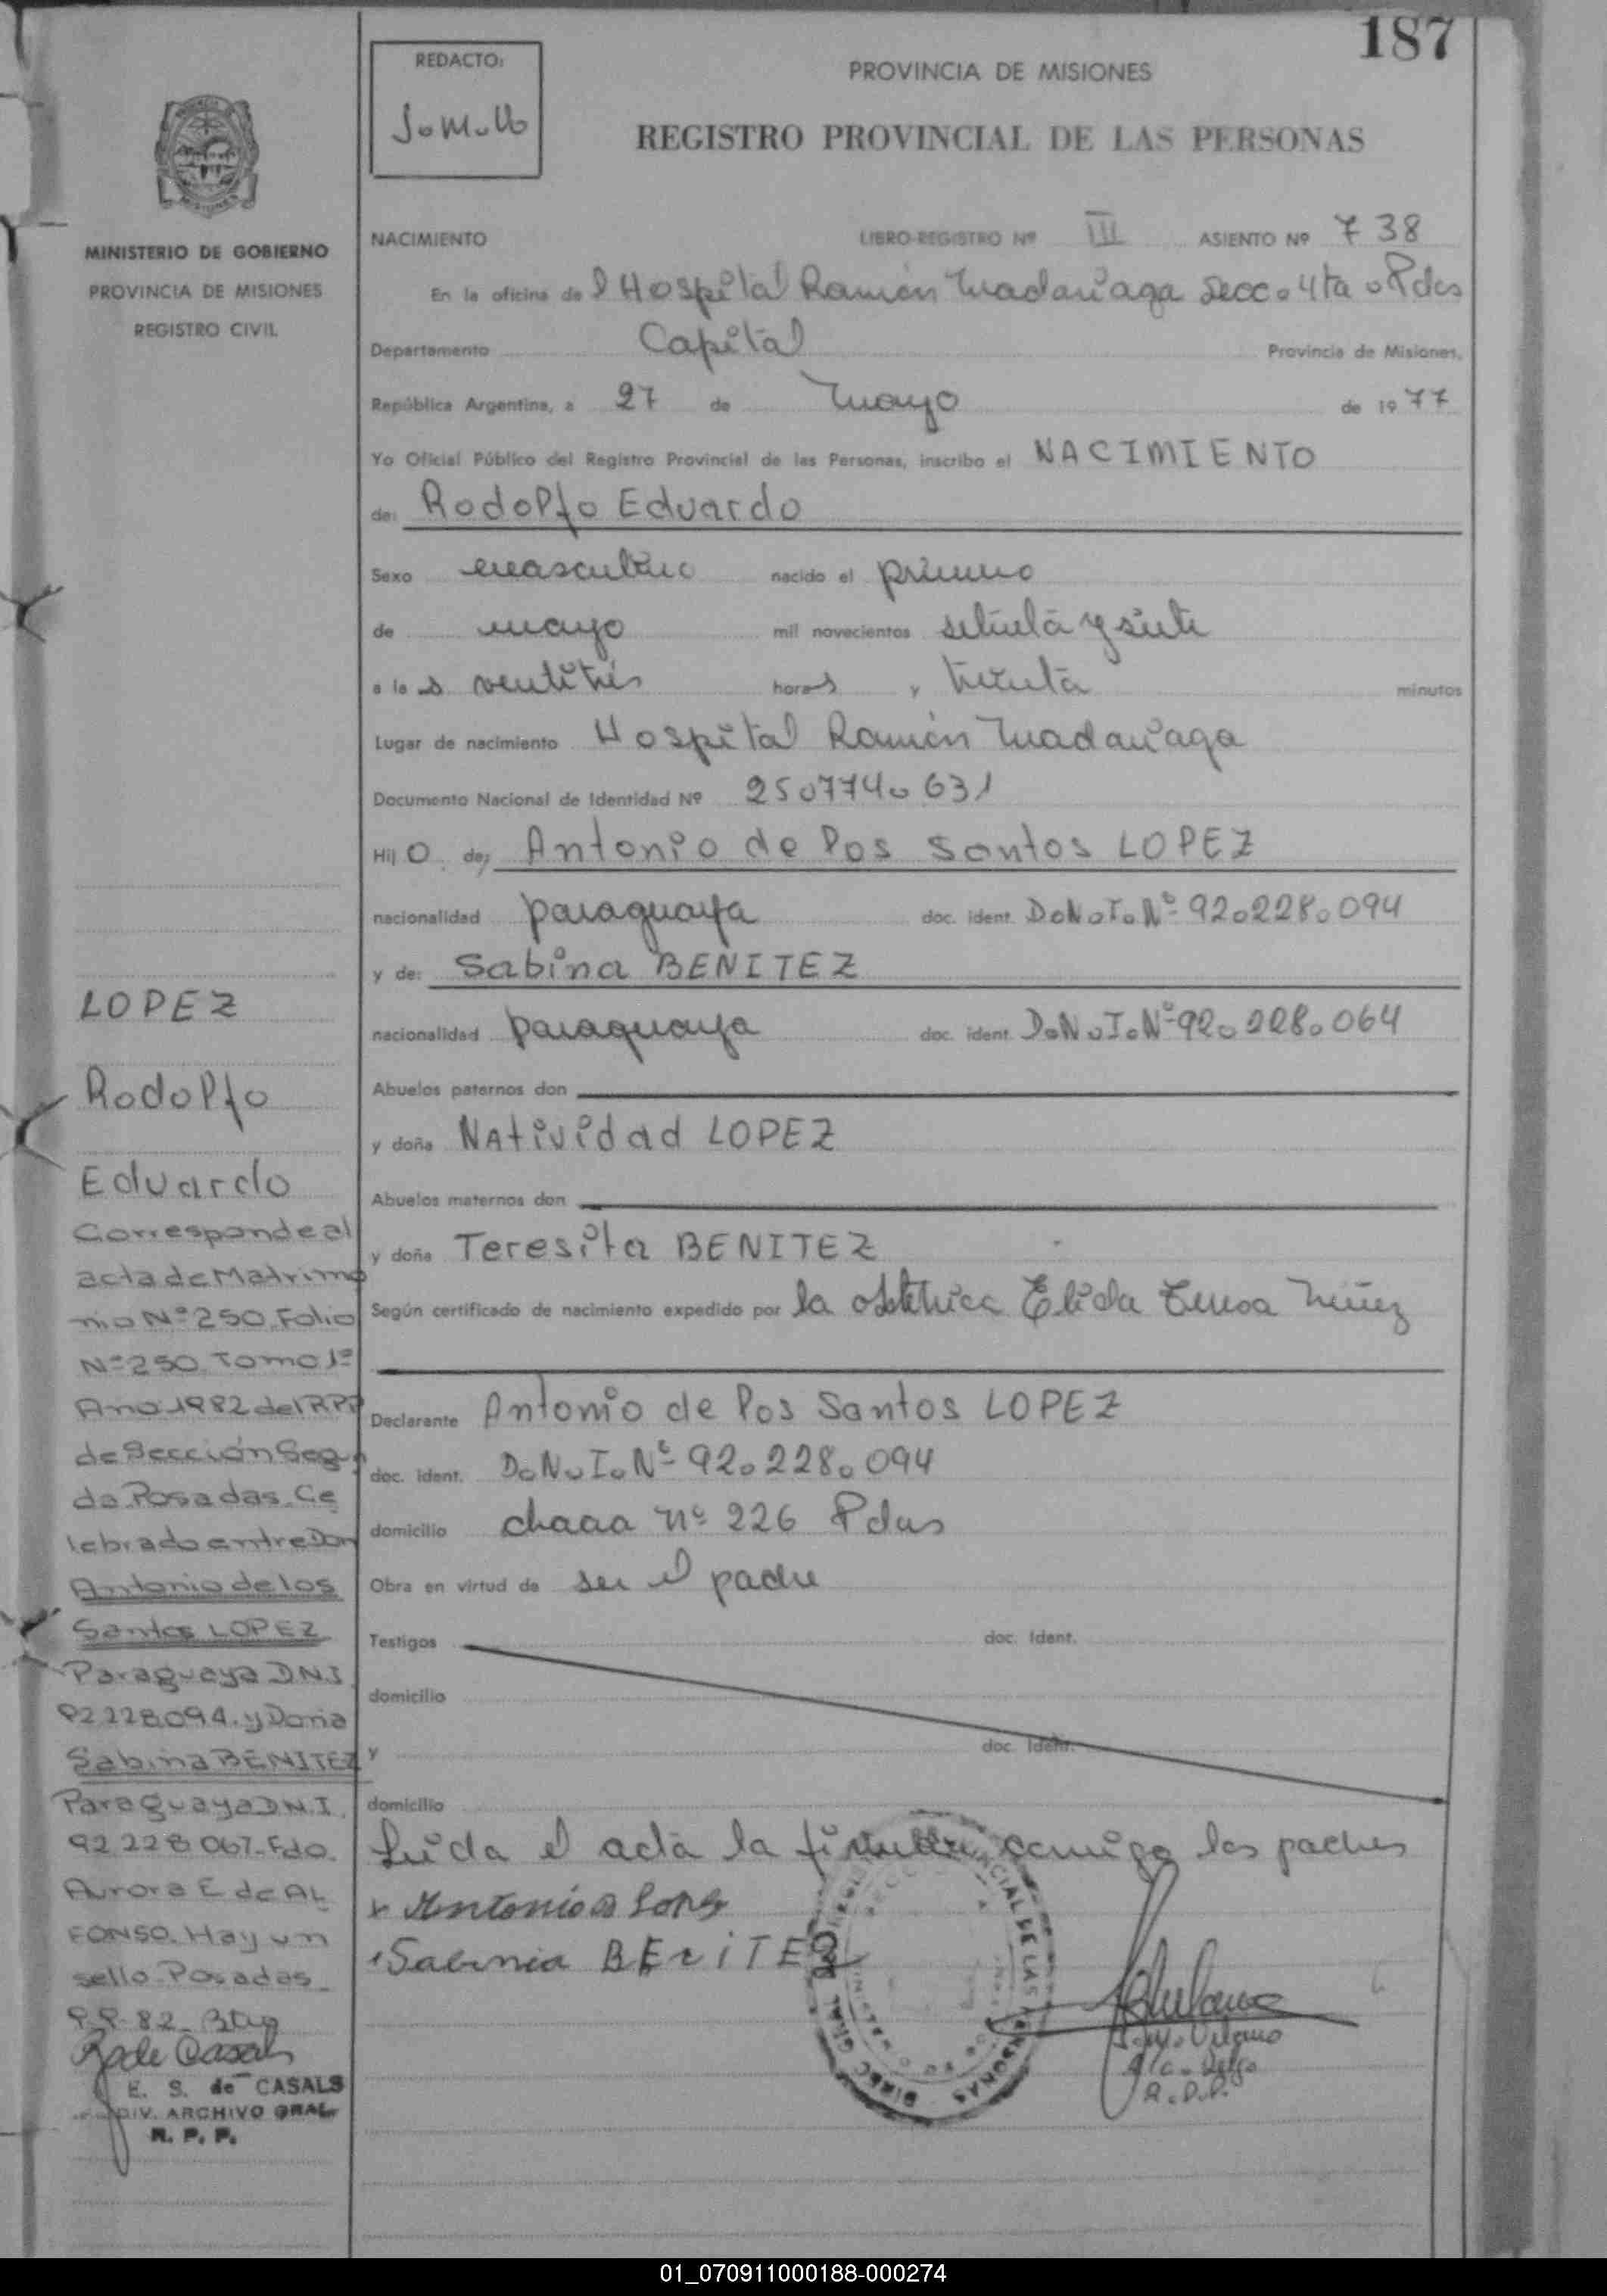 187
REDACTO:
PROVINCIA DE MISIONES
REGISTRO PROVINCIAL DE LAS PERSONAS
NACIMIENTO LIBRO-REGISTRO Nº III ASIENTO Nº 738
En la oficina del Hospital Ramón Madariaga Secc. 4ta. Pdas
Departamento Capital Provincia de Misiones.
República Argentina, a 27 de Mayo de 1977
Yo Oficial Público del Registro Provincial de las Personas, inscribo el NACIMIENTO
de: Rodolfo Eduardo
Sexo masculino nacido el primero
de mayo mil novecientos setenta y siete
a las ventitrés horas y treinta minutos
Lugar de nacimiento Hospital Ramón Madariaga
Documento Nacional de Identidad Nº 25.774.631
Hijo de: Antonio de los Santos LOPEZ
nacionalidad paraguaya doc. ident. D.N.I.Nº 92.228.094
y de: Sabina BENITEZ
nacionalidad paraguaya doc. ident. D.N.I.Nº 92.228.064
Abuelos paternos don
y doña Natividad LOPEZ
Abuelos maternos don
y doña Teresita BENITEZ
Según certificado de nacimiento expedido por la obstétrica Elida Teresa Núñez
Declarante Antonio de los Santos LOPEZ
doc. ident. D.N.I.Nº 92.228.094
domicilio chacra nº 226 Pdas
Obra en virtud de ser el padre
Testigos doc. Ident.
domicilio
y doc. Ident.
domicilio
Leida el acta la firman conmigo los padres
Antonio D Lopez
Sabinia BENITEZ
R.P.P.
MINISTERIO DE GOBIERNO
PROVINCIA DE MISIONES
REGISTRO CIVIL
LOPEZ
Rodolfo
Eduardo
Corresponde al
acta de Matrimo
nio Nº 250 Folio
Nº 250 Tomo 1º
Año 1982 del RPP
de Sección Segun
da Posadas. Ce
lebrado entre Don
Antonio de los
Santos LOPEZ
Paraguaya DNI
92.228.094. y Doña
Sabina BENITEZ
Paraguaya D.N.I.
92 228 067. Fdo.
Aurora E de AL
FONSO. Hay un
sello. Posadas
9-9-82
E. S. de CASALS
DIV. ARCHIVO GRAL.
R. P. P.
01_070911000188-000274